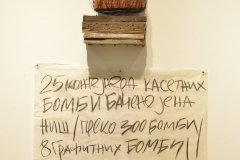 25 КОНТЕЈНЕРА КАСЕТНИХ
БОМБИ БАЧЕНО ЈЕ НА
НИШ / ПРЕКО 300 БОМБИ /
8 ГРАФИТНИХ БОМБИ /